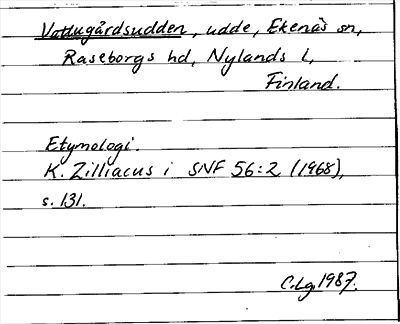 Vattugårdsudden, udde, Ekenäs sn,
Raseborgs hd, Nylands l,
Finland.
Etymologi.
K. Zilliacus i SNF 56:2 (1968),
s. 131.
C. Lg. 1987.